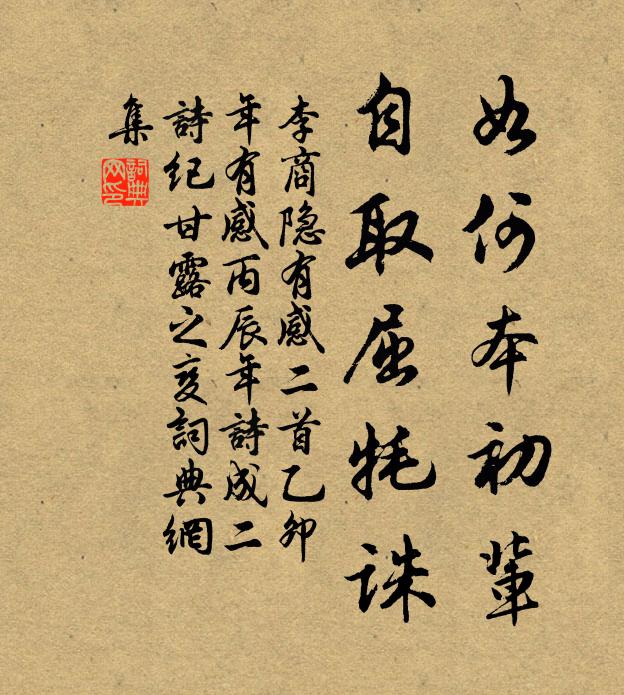 如何本初輩
自取屈牦誅
李商隐有感二首乙卯
年有感丙辰年詩成二
詩纪甘露之变詞典網
集
詞典
网印